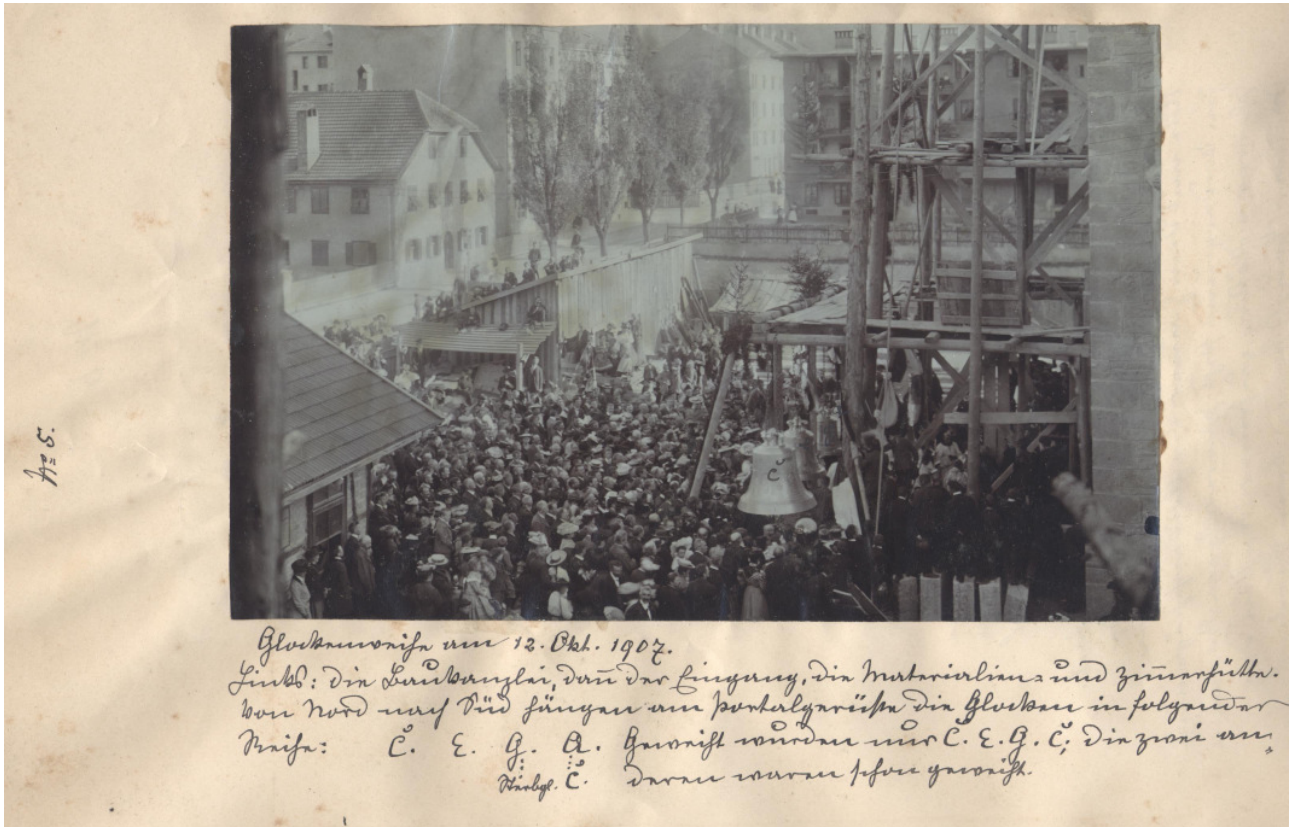 No 5.
C
Glockenweihe am 12. Okt. 1907.
Links: die Baukanzlei, dan̄ der Eingang, die Materialien= und Zim̄erhütte.
Von Nord nach Süd hängen am Portalgerüste die Glocken in folgender
Reihe: C. E. G. A. Geweiht wurden nur C. E. G. C; die zwei an=
Sterbgl. C. deren waren schon geweiht.